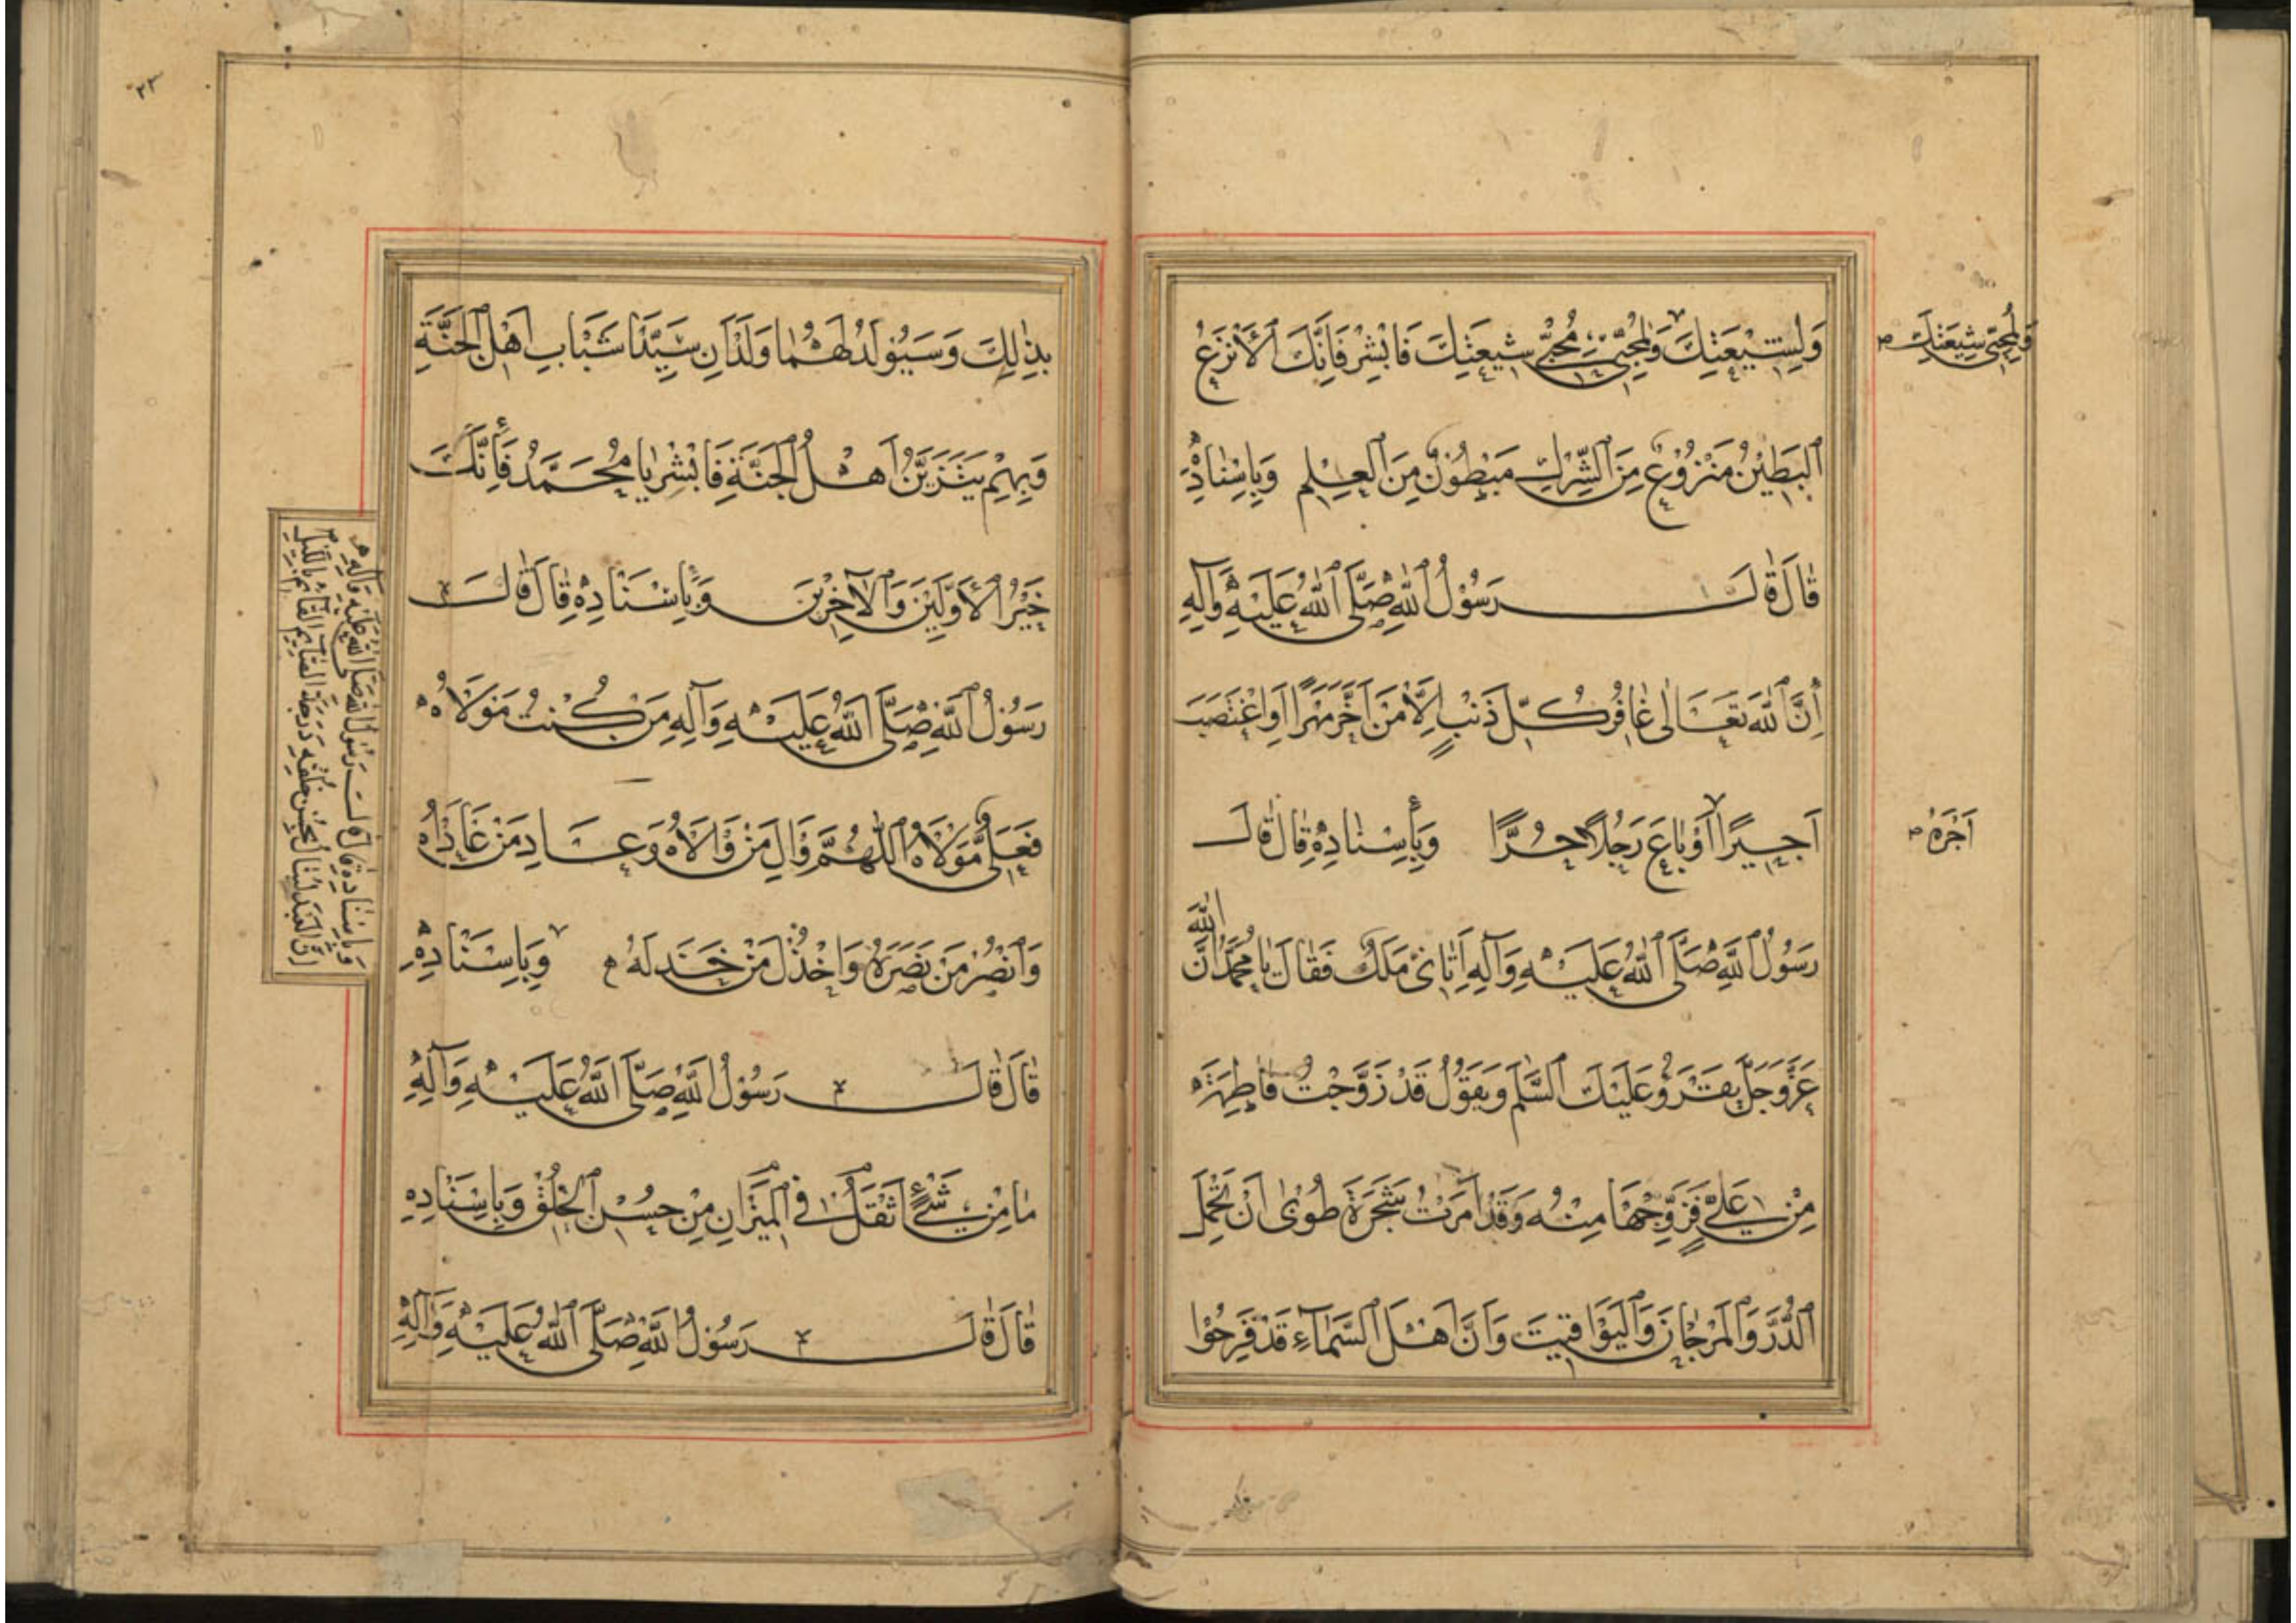 وَلِشِيْعَتِكَ وَلِمُحِبّي مُحِبّي شِيعَتِكَ فَابْشِرْ فَاِنَّكَ الْاَنْزَعُ
وَلِمُحِبّي شِيعَتِكَ
الْبَطِيْنُ مَنْزُوْعٌ مِنَ الشِّرْكِ مَبْطُوْنٌ مِنَ الْعِلْمِ وَبِاِسْنَادِهِ
قَالَ قَالَ رَسُوْلُ اللهِ صَلَّى اللهُ عَلَيْهِ وَآلِهِ
اِنَّ اللهَ تَعَالٰى غَافِرُ كُلِّ ذَنْبٍ اِلَّا مَنْ اَخَّرَ مَهْرًا اَوِ اغْتَصَبَ
اَجِيْرًا اَوْ بَاعَ رَجُلًا حُرًّا وَبِاِسْنَادِهِ قَالَ قَالَ
اَجْرَهُ
رَسُوْلُ اللهِ صَلَّى اللهُ عَلَيْهِ وَآلِهِ اَتَانِيْ مَلَكٌ فَقَالَ يَا مُحَمَّدُ اِنَّ اللهَ
عَزَّ وَجَلَّ يَقْرَؤُ عَلَيْكَ السَّلَمَ وَيَقُوْلُ قَدْ زَوَّجْتُ فَاطِمَةَ
مِنْ عَلِيٍّ فَزَوِّجْهَا مِنْهُ وَقَدْ اَمَرْتُ شَجَرَةَ طُوْبٰى اَنْ تَحْمِلَ
الدُّرَّ وَالْمَرْجَانَ وَالْيَوَاقِيْتَ وَاَنَّ اَهْلَ السَّمَآءِ قَدْ فَرِحُوْا
٢٣
بِذٰلِكَ وَسَيُوْلَدُ لَهُمَا وَلَدَانِ سَيِّدَا شَبَابِ اَهْلِ الْجَنَّةِ
وَبِهِمْ يَتَزَيَّنُ اَهْلُ الْجَنَّةِ فَابْشِرْ يَا مُحَمَّدُ فَاِنَّكَ
خَيْرُ الْاَوَّلِيْنَ وَالْآخِرِيْنَ وَبِاِسْنَادِهِ قَالَ قَالَ
رَسُوْلُ اللهِ صَلَّى اللهُ عَلَيْهِ وَآلِهِ مَنْ كُنْتُ مَوْلَاهُ
فَعَلِيٌّ مَوْلَاهُ اَللّٰهُمَّ وَالِ مَنْ وَالَاهُ وَعَادِ مَنْ عَادَاهُ
وَانْصُرْ مَنْ نَصَرَهُ وَاخْذُلْ مَنْ خَذَلَهُ وَبِاِسْنَادِهِ
قَالَ قَالَ رَسُوْلُ اللهِ صَلَّى اللهُ عَلَيْهِ وَآلِهِ
مَا مِنْ شَيْءٍ اَثْقَلُ فِي الْمِيْزَانِ مِنْ حُسْنِ الْخُلْقِ وَبِاِسْنَادِهِ
قَالَ قَالَ رَسُوْلُ اللهِ صَلَّى اللهُ عَلَيْهِ وَآلِهِ
وَبِاِسْنَادِهِ قَالَ قَالَ رَسُوْلُ اللهِ صَلَّى اللهُ عَلَيْهِ وَآلِهِ
اِنَّ الْعَبْدَ لَيَنَالُ بِحُسْنِ خُلْقِهِ دَرَجَةَ الصَّائِمِ الْقَائِمِ